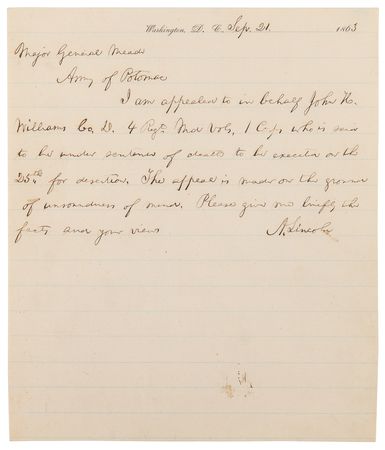 Washington, D. C. Sep. 21. 1863
Major General Meade
Army of Potomac
I am appealed to in behalf John H.
Williams Co. D. 4 Regt. Md Vols, 1 Corps who is said
to be under sentence of death to be executed on the
25th for desertion. The appeal is made on the ground
of unsoundness of mind. Please give me briefly the
facts and your views
A. Lincoln